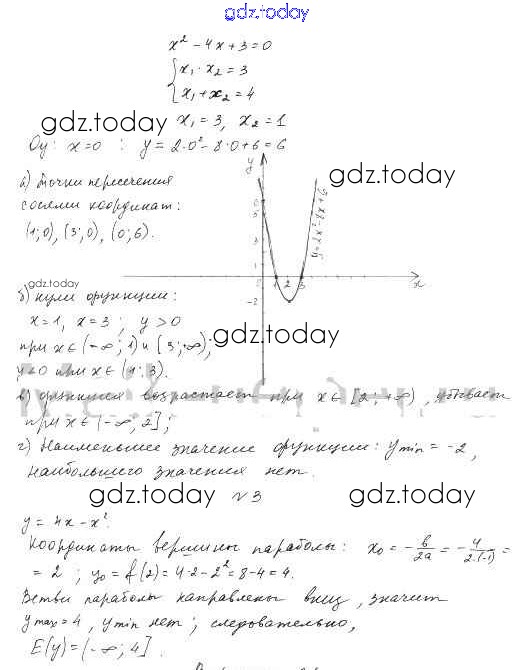 gdz.today
x² - 4x + 3 = 0
{ x₁ · x₂ = 3
{ x₁ + x₂ = 4
gdz.today x₁ = 3, x₂ = 1
Oy: x=0 : y = 2·0² - 8·0 + 6 = 6
gdz.today
а) точки пересечения
с осями координат:
(1;0), (3;0), (0;6).
y
6
5
3
y=2x²-8x+6
1 2 3 x
-2
gdz.today
б) нули функции:
x=1, x=3 ; y>0
gdz.today
при x∈(-∞;1) и [3;+∞);
y<0 при x∈(1;3).
в) функция возрастает при x∈[2;+∞), убывает
при x∈(-∞;2];
г) Наименьшее значение функции: y min = -2,
наибольшего значения нет.
gdz.today №3 gdz.today
y = 4x - x².
Координаты вершины параболы: x₀ = -b/2a = -4/2·(-1) =
= 2 ; y₀ = f(2) = 4·2 - 2² = 8 - 4 = 4.
Ветви параболы направлены вниз, значит
y max = 4, y min нет ; следовательно,
E(y) = (-∞; 4].